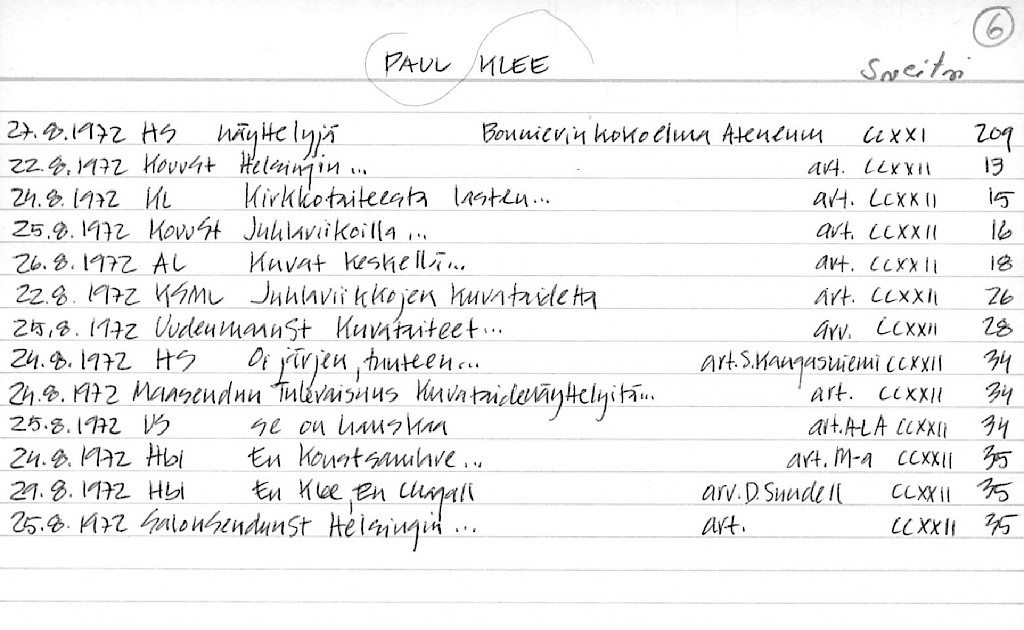 6
PAUL KLEE Sveitsi
27.8.1972 HS Näyttelyjä Bonnierin kokoelma Ateneum CCXXI 209
22.8.1972 KouvSt Helsingin... art. CCXXII 13
24.8.1972 KL Kirkkotaiteesta lasten... art. CCXXII 15
25.8.1972 KouvSt Juhlaviikoilla... art. CCXXII 16
26.8.1972 AL Kuvat keskellä... art. CCXXII 18
22.8.1972 KSML Juhlaviikkojen kuvataidetta art. CCXXII 26
25.8.1972 UudenmaanSt Kuvataiteet... arv. CCXXII 28
24.8.1972 HS Oi järjen, tunteen... art. S. Kangasniemi CCXXII 34
24.8.1972 Maaseudun Tulevaisuus Kuvataidenäyttelyitä... art. CCXXII 34
25.8.1972 US se on hauskaa art. ALA CCXXII 34
24.8.1972 Hbl En Konstsamlare... art. M-a CCXXII 35
29.8.1972 Hbl En Klee, En Chagall arv. D. Sundell CCXXII 35
25.8.1972 SalonseudunSt Helsingin... art. CCXXII 35